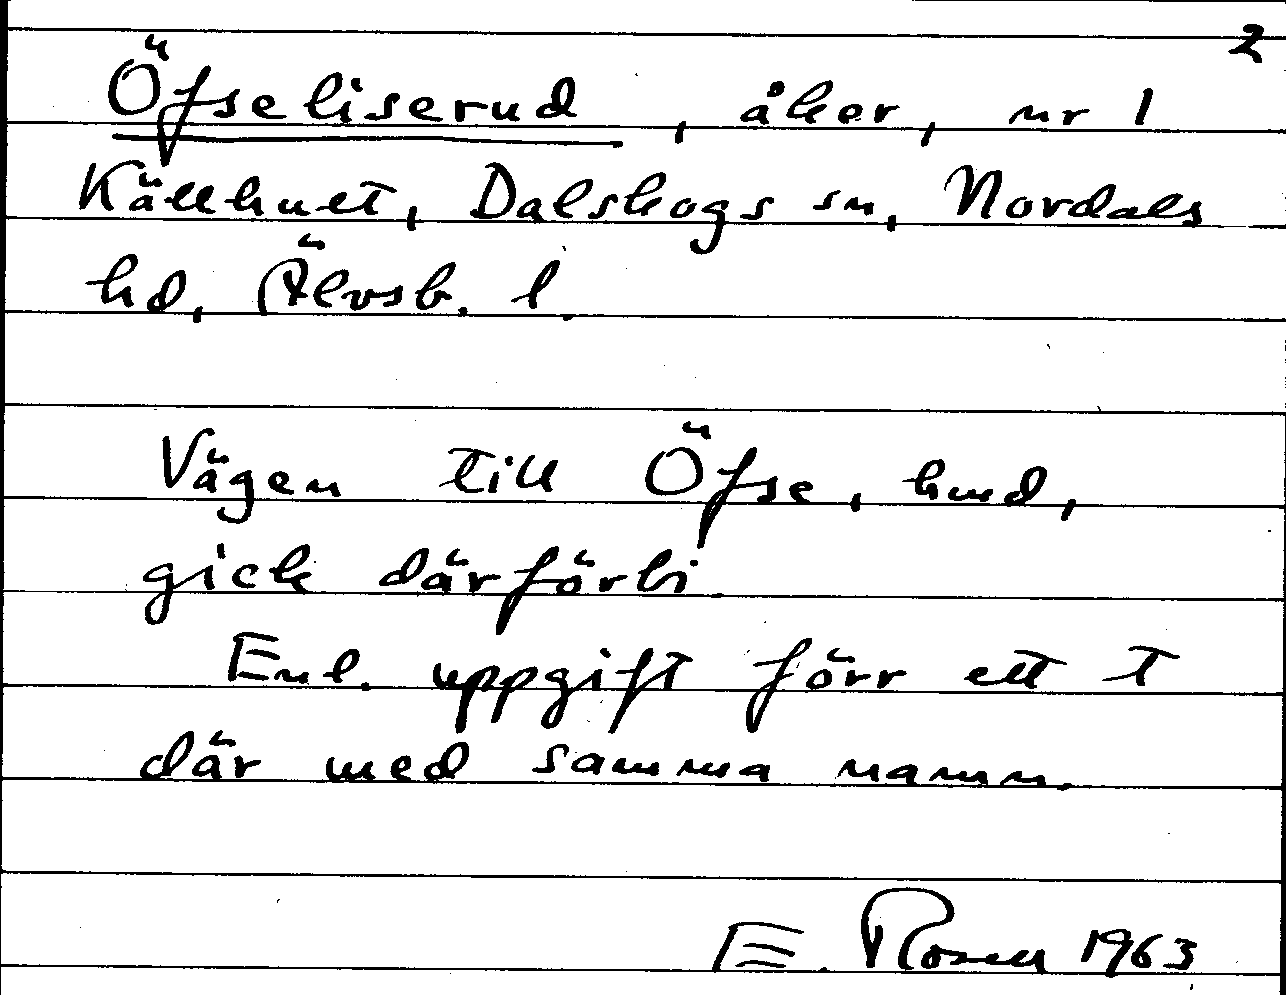 2
Öfseliserud, åker, nr 1
Källhult, Dalskogs sn, Nordals
hd, Älvsb. l.
Vägen till Öfse, hmd,
gick därförbi.
Enl. uppgift förr ett t
där med samma namn.
E. Rosell 1963